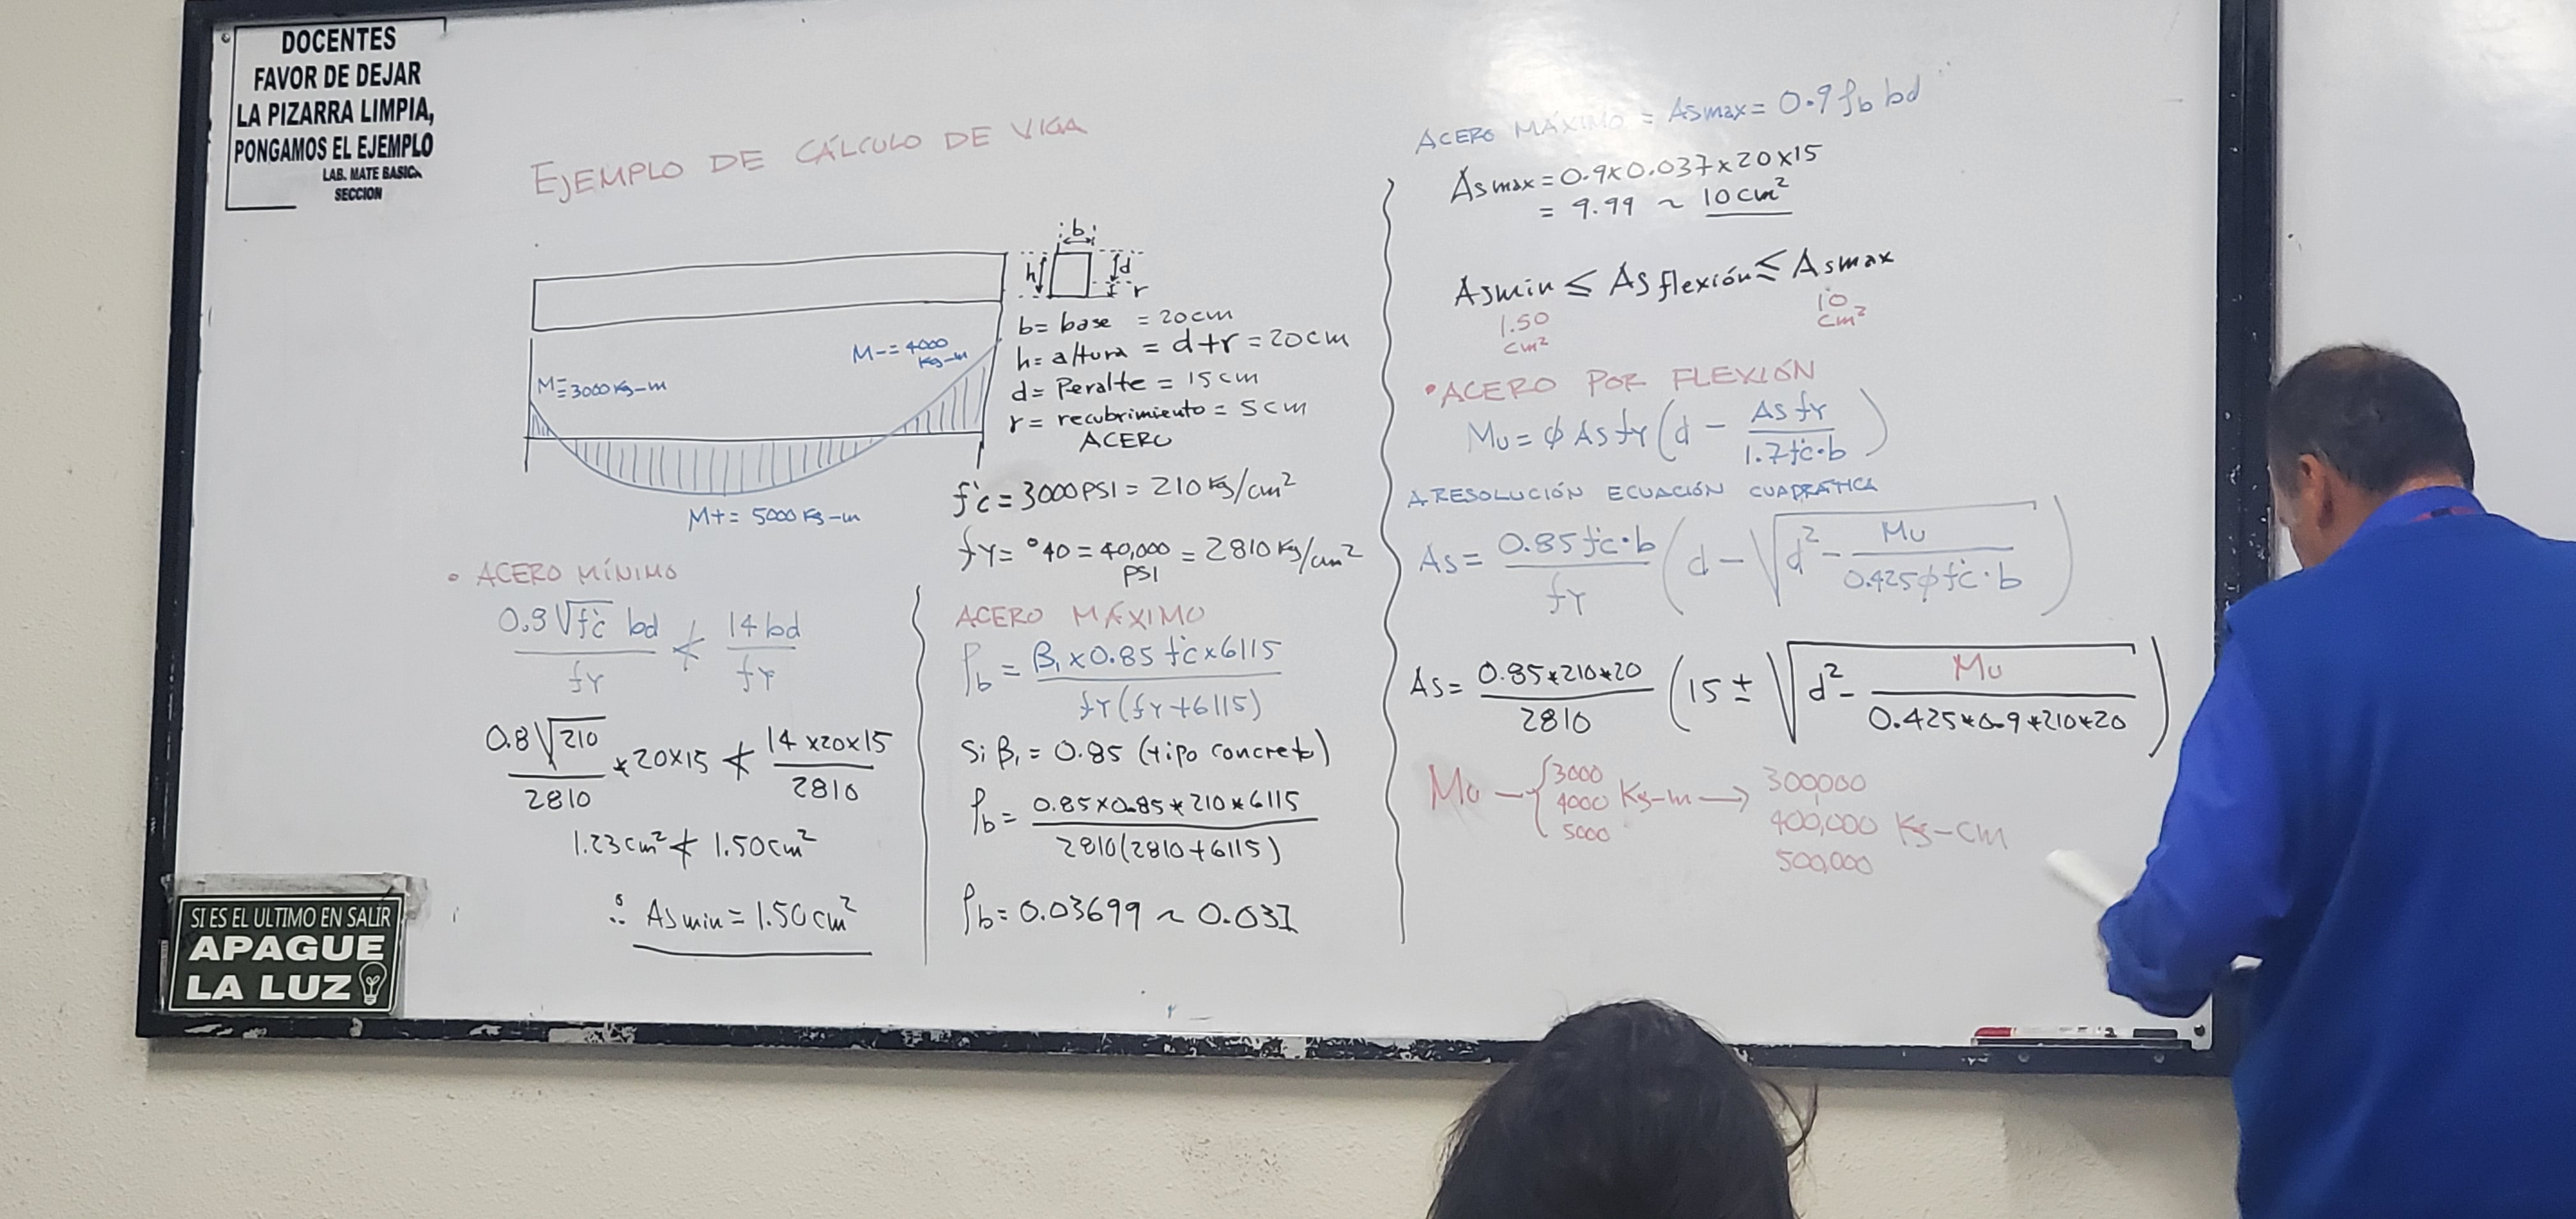 DOCENTES
FAVOR DE DEJAR
LA PIZARRA LIMPIA,
PONGAMOS EL EJEMPLO
LAB. MATE BASICA
SECCION
EJEMPLO DE CÁLCULO DE VIGA
b
h d
r
M- = 3000 Kg-m
M- = 4000 Kg-m
M+ = 5000 Kg-m
b = base = 20cm
h = altura = d+r = 20cm
d = Peralte = 15cm
r = recubrimiento = 5cm
ACERO
f'c = 3000 PSI = 210 Kg/cm²
fy = °40 = 40,000 PSI = 2810 Kg/cm²
• ACERO MÍNIMO
0.8√f'c bd / fy ≮ 14bd / fy
0.8√210 / 2810 * 20x15 ≮ 14x20x15 / 2810
1.23cm² ≮ 1.50cm²
∴ Asmin = 1.50cm²
ACERO MÁXIMO
ρb = β₁ x 0.85 f'c x 6115 / fy (fy + 6115)
Si β₁ = 0.85 (tipo concreto)
ρb = 0.85x0.85*210*6115 / 2810(2810+6115)
ρb = 0.03699 ~ 0.037
ACERO MÁXIMO = Asmax = 0.9 ρb bd
Asmax = 0.9x0.037x20x15
= 9.99 ~ 10cm²
Asmin ≤ As flexión ≤ Asmax
1.50 cm² 10 cm²
• ACERO POR FLEXIÓN
Mu = φ As fy (d - As fy / 1.7 f'c·b)
A. RESOLUCIÓN ECUACIÓN CUADRÁTICA
As = 0.85 f'c·b / fy (d - √(d² - Mu / 0.425 φ f'c·b))
As = 0.85*210*20 / 2810 (15 ± √(d² - Mu / 0.425*0.9*210*20))
Mu – { 3000 4000 5000 Kg-m → 300,000 400,000 500,000 Kg-cm
SI ES EL ULTIMO EN SALIR
APAGUE
LA LUZ